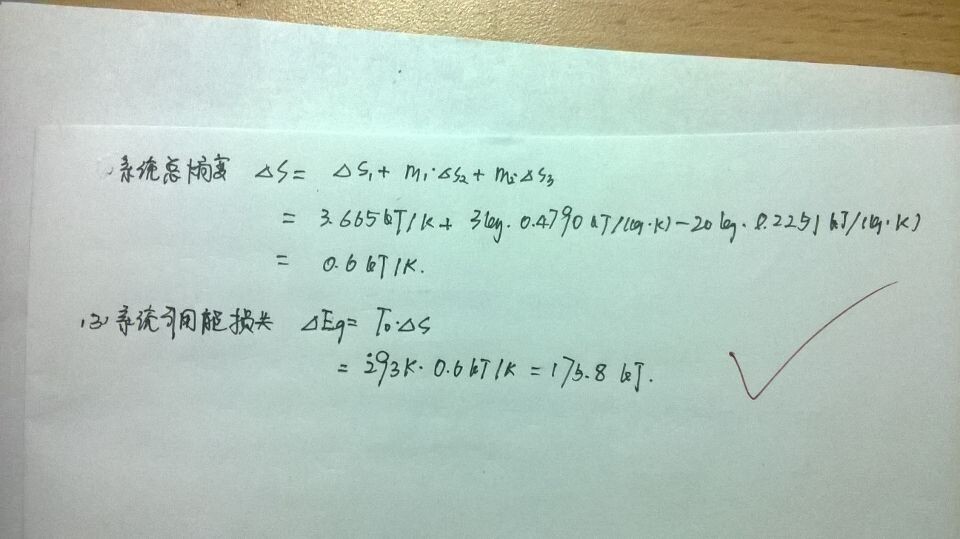 系统总熵变 ΔS= ΔS₁+ m₁·ΔS₂+ m₂·ΔS₃
= 3.665kJ/K+ 3kg·0.4790kJ/(kg·K)-20kg·0.2251kJ/(kg·K)
= 0.6kJ/K.
(3)系统可用能损失 ΔEq= T₀·ΔS
= 293K·0.6kJ/K=175.8kJ.